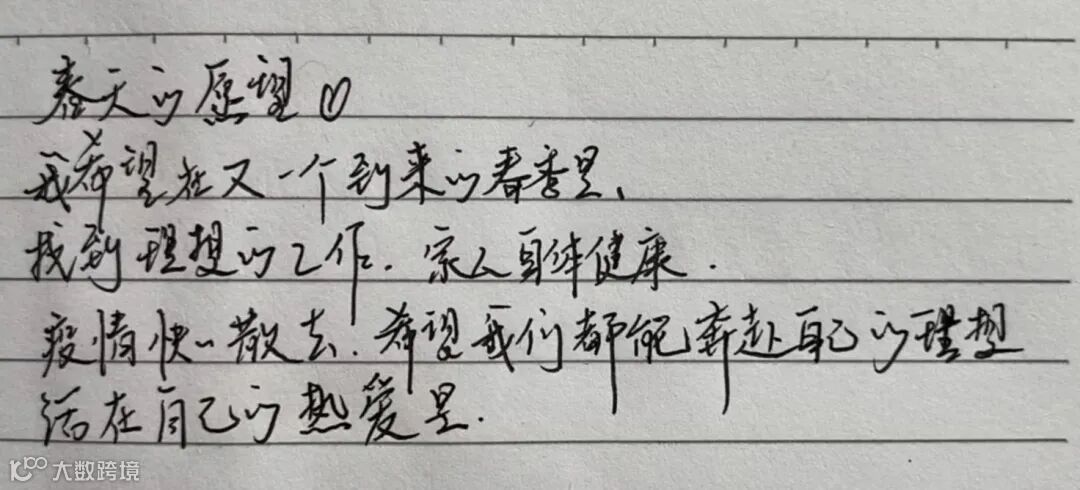 春天的愿望
我希望在又一个到来的春季里、
找到理想的工作.家人身体健康.
疫情快快散去.希望我们都能奔赴自己的理想
活在自己的热爱里.
大数跨境